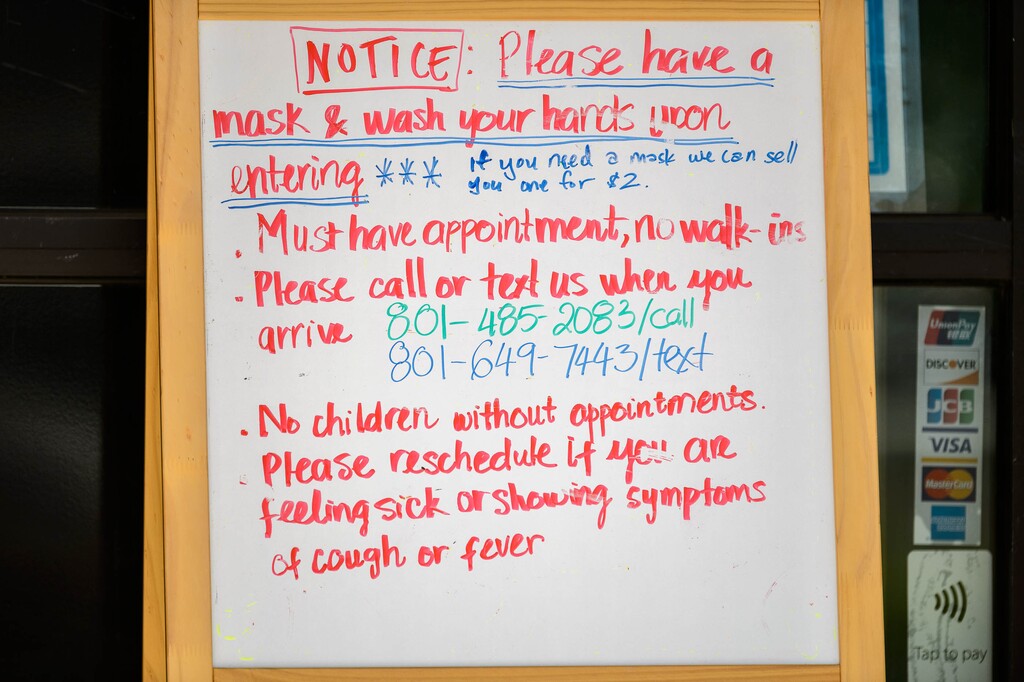 NOTICE: Please have a
mask & wash your hands upon
entering ***
If you need a mask we can sell
you one for $2.
. Must have appointment, no walk-ins
. Please call or text us when you
arrive
801-485-2083/call
801-649-7443/text
. No children without appointments.
. Please reschedule if you are
feeling sick or showing symptoms
of cough or fever
UnionPay
银联
DISCOVER
JCB
VISA
MasterCard
Tap to pay